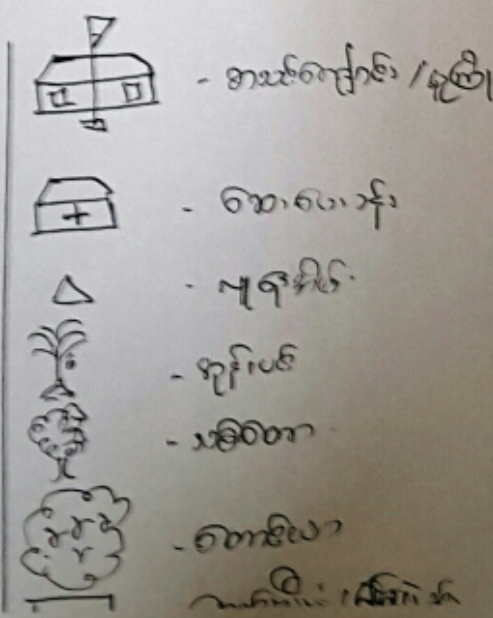 - စာသင်ကျောင်း / မူကြို
- ဆေးပေးခန်း
- လူနေအိမ်
- အုန်းပင်
- သစ်တော
- တောင်ယာ